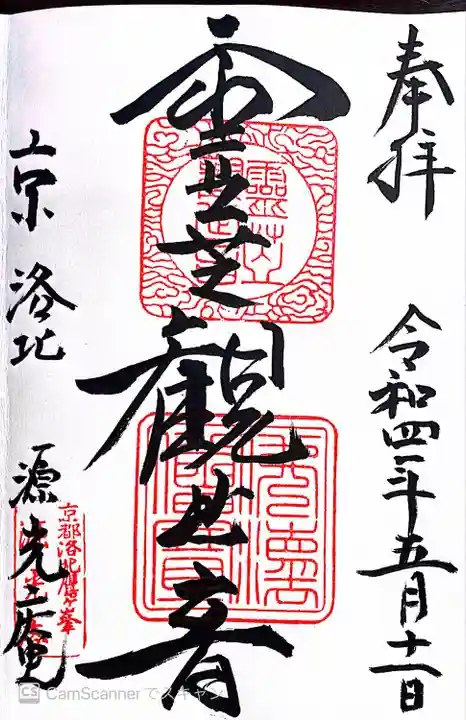 奉拝
令和四年五月十一日
霊芝観世音
京洛北
源光庵
京都洛北鷹ヶ峯
CS CamScanner でスキャン